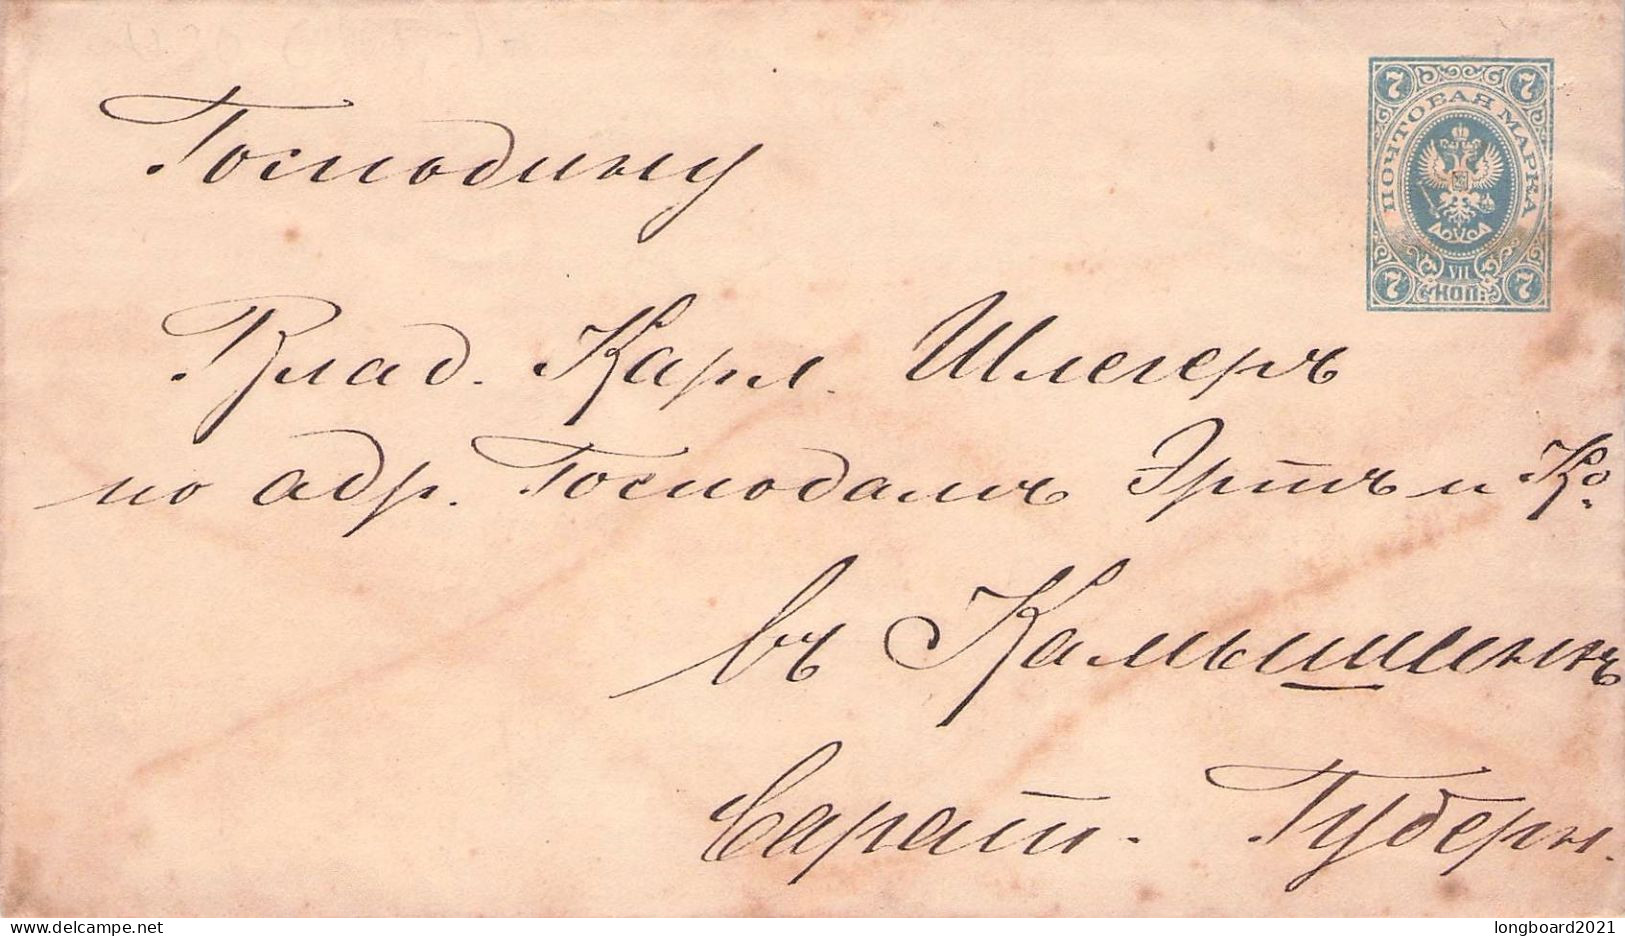 Господину
7 7
ПОЧТОВАЯ МАРКА
VII
КОП.
7 7
Влад. Карл. Шлегеръ
по адр. Господамъ Эртъ и Ко.
въ Камышинъ
Сарат. Губерн.
longboard2021